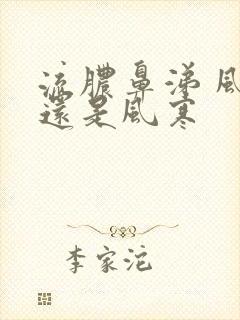 流膿鼻涕風
還是風寒
李家沱